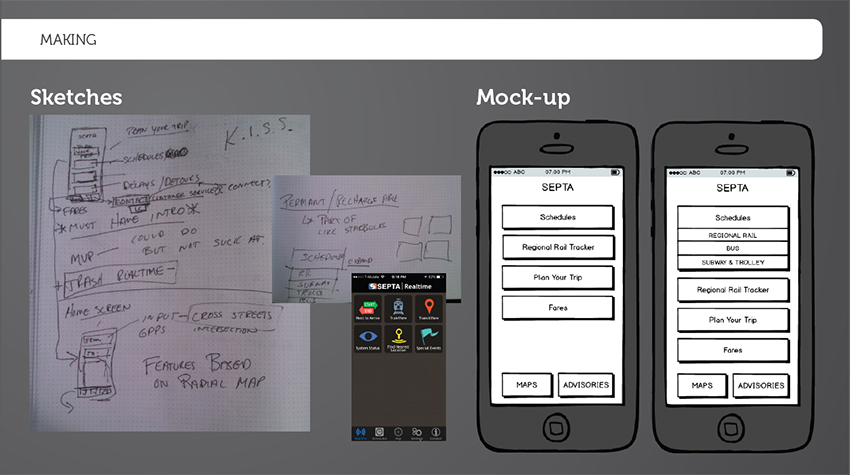 MAKING
Sketches
K.I.S.S.
PLAN YOUR TRIP
SEPTA
SCHEDULES
DELAYS/DETOURS
CONTACT
CUSTOMER SERVICE? CONNECT?
FARES
* MUST HAVE INTRO *
COULD DO
MVP
BUT NOT SUCK AT
TRASH REALTIME
HOME SCREEN
INPUT
CROSS STREETS
GPPS
INTERSECTION
FEATURES BASED
ON RADIAL MAP
PERMANT/RECHARGEABLE
PART OF
LIKE STARBUCKS
SCHEDULE
EXPAND
RR
SUBWAY
9:16 PM
SEPTA | Realtime
Next to Arrive
TrainView
TransitView
System Status
Find Nearest
Location
Special Events
Mock-up
ABC 07:00 PM
SEPTA
Schedules
Regional Rail Tracker
Plan Your Trip
Fares
MAPS
ADVISORIES
ABC 07:00 PM
SEPTA
Schedules
REGIONAL RAIL
BUS
SUBWAY & TROLLEY
Regional Rail Tracker
Plan Your Trip
Fares
MAPS
ADVISORIES